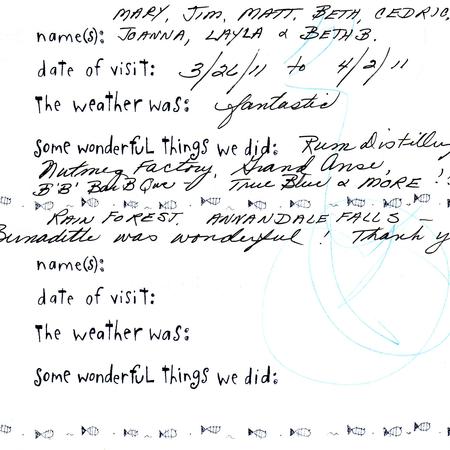 MARY, Jim, MATT, BETH, CEDRIC,
name(s): JOANNA, LAYLA & BETH B.
date of visit: 3/26/11 to 4/2/11
The weather was: fantastic
Some wonderful things we did: Rum Distillery
Nutmeg Factory, Grand Anse,
B'B' Bar B Que True Blue & MORE !
RAIN FOREST, ANNANDALE FALLS —
Bernadette was wonderful ! Thank y
name(s):
date of visit:
The weather was:
Some wonderful things we did: